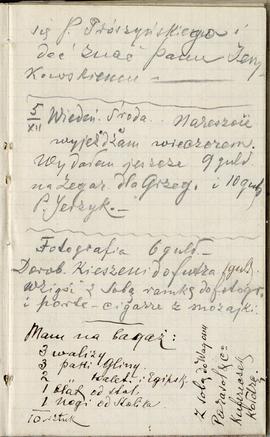 się P. Prószyńskiego i
dać znać Panu Jerzy
kowskiemu
5/XII Wiedeń. Środa. Nareszcie
wyjeżdżam wieczorem.
Wydałem jeszcze 9 guld
na zegar. dla Grzeg. i 10 guld
P. Jerzyk.
Fotografia 6 guld
Dorob. Kieszeni do futra 1 guld
wziąść z sobą ramkę do fotogr.
i porte-cigarre z mozajki.
Mam na bagaż:
3 walizy
3 paki Gliny
2
1 blat od stol.
1 nogi od stolika
10 sztuk
Z sobą do Warszawy
Parasol
Kuferek
Kołdrę